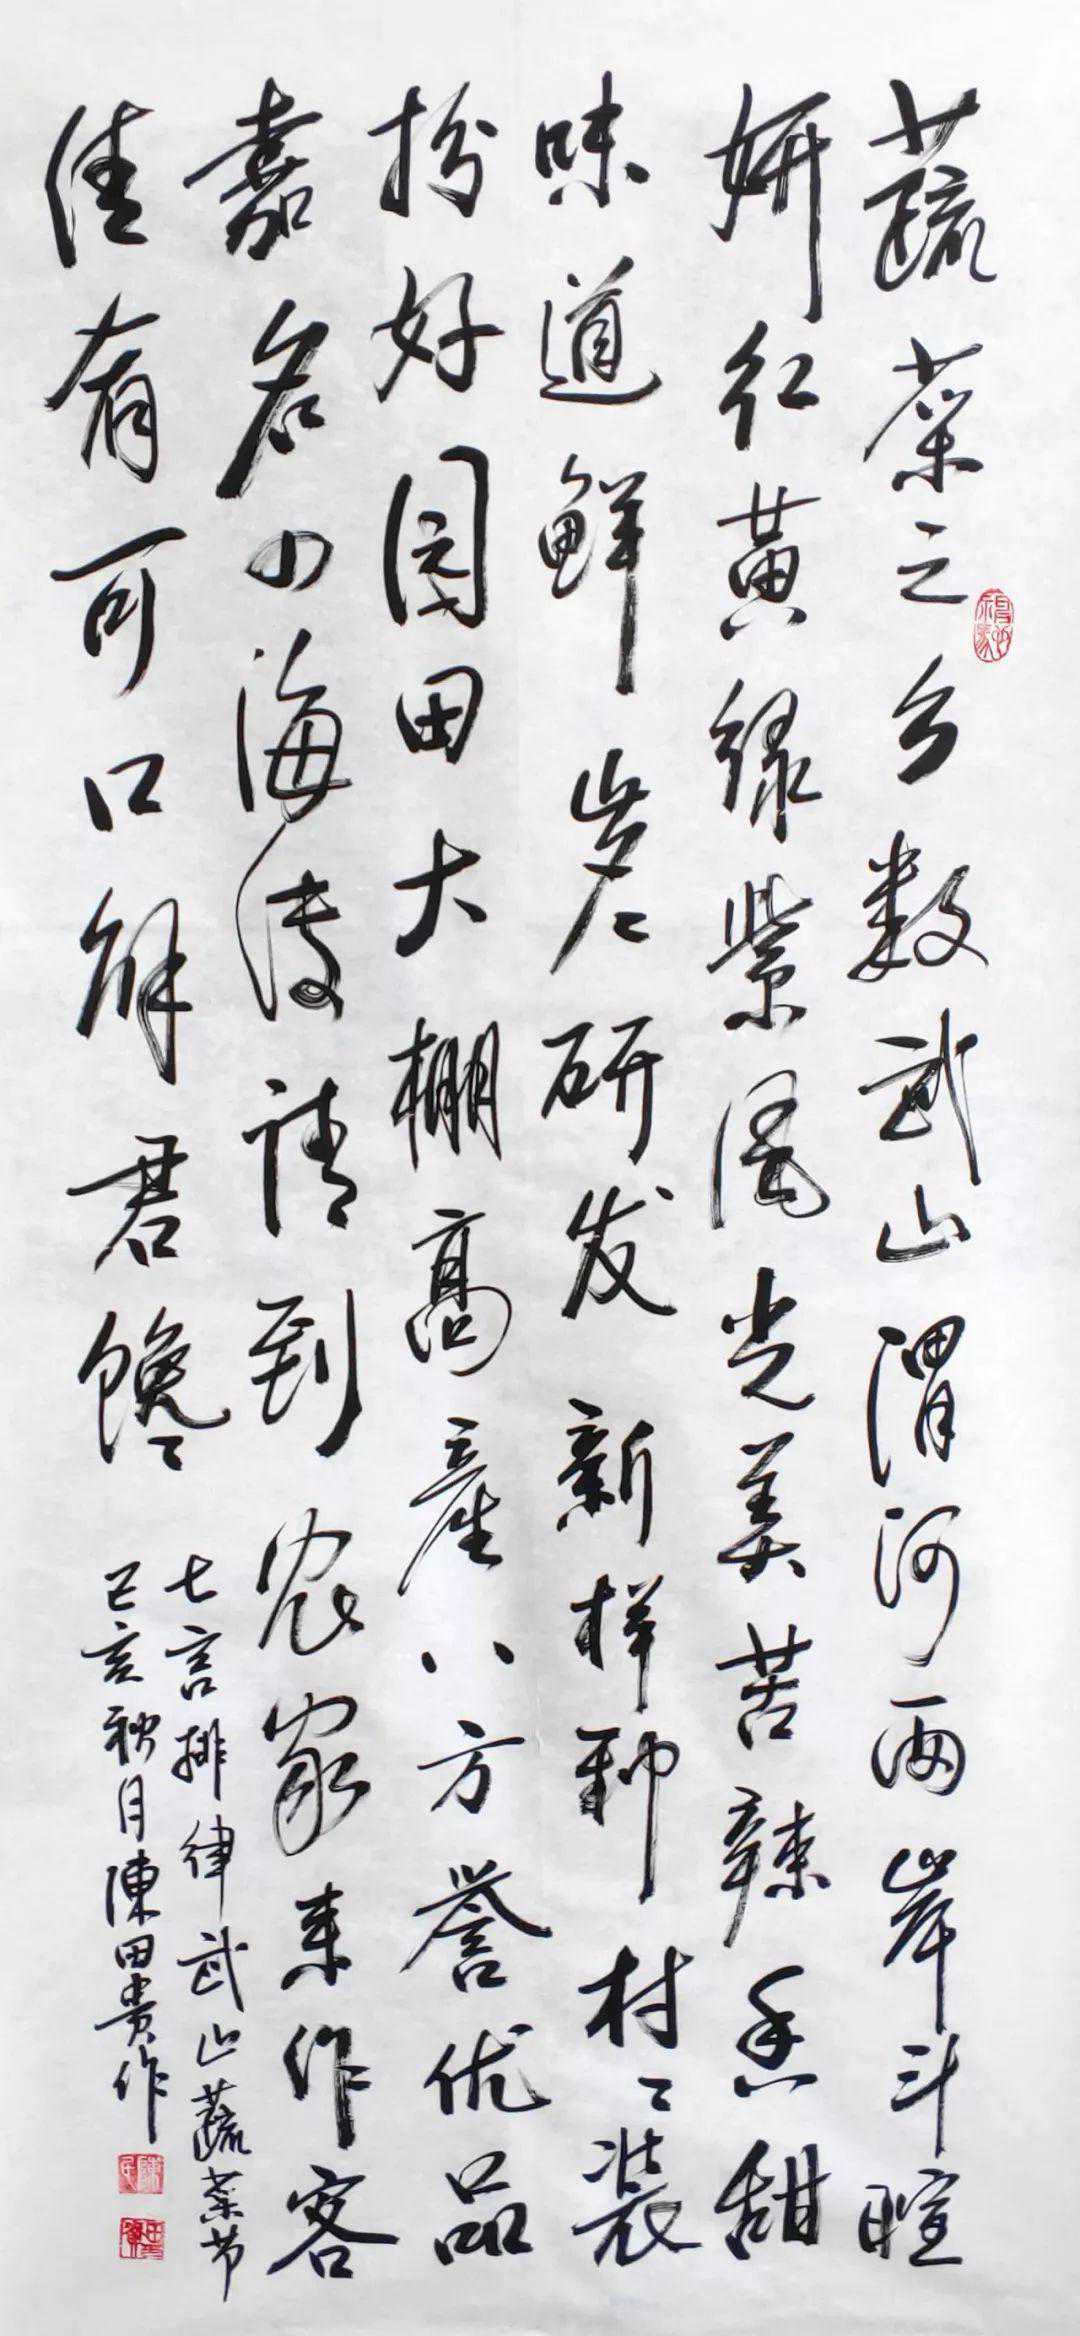 蔬菜之乡数武山渭河两岸斗暄
妍红黄绿紫风光美苦辣香甜
味道鲜岁〻研发新样种村〻装
扮好园田大棚高產八方誉优品
嘉名四海传请到农家来作客
佳肴可口解君馋
七言排律武山蔬菜节
己亥秋月陳田贵作